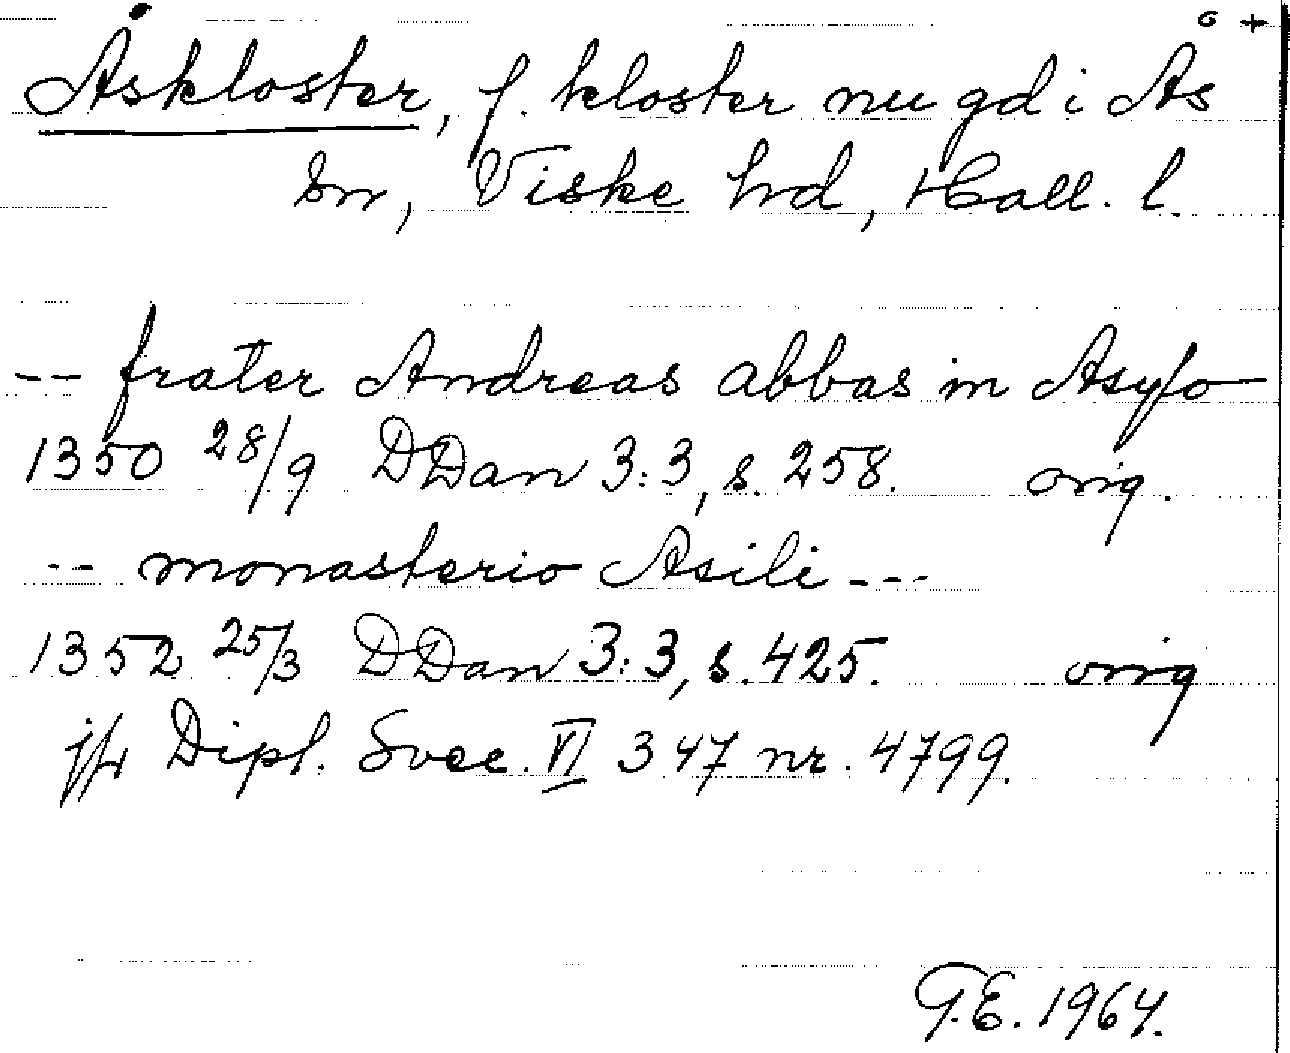 Åskloster, f. kloster nu gd i Ås +
sn, Viske hd, Hall. l.
-- frater Andreas abbas in Asylo
1350 28/9 DDan 3:3, s. 258. orig.
-- monasterio Asili ---
1352 25/3 DDan 3:3, s. 425. orig
jfr Dipl. Svec. VI 347 nr. 4799.
G.E. 1964.